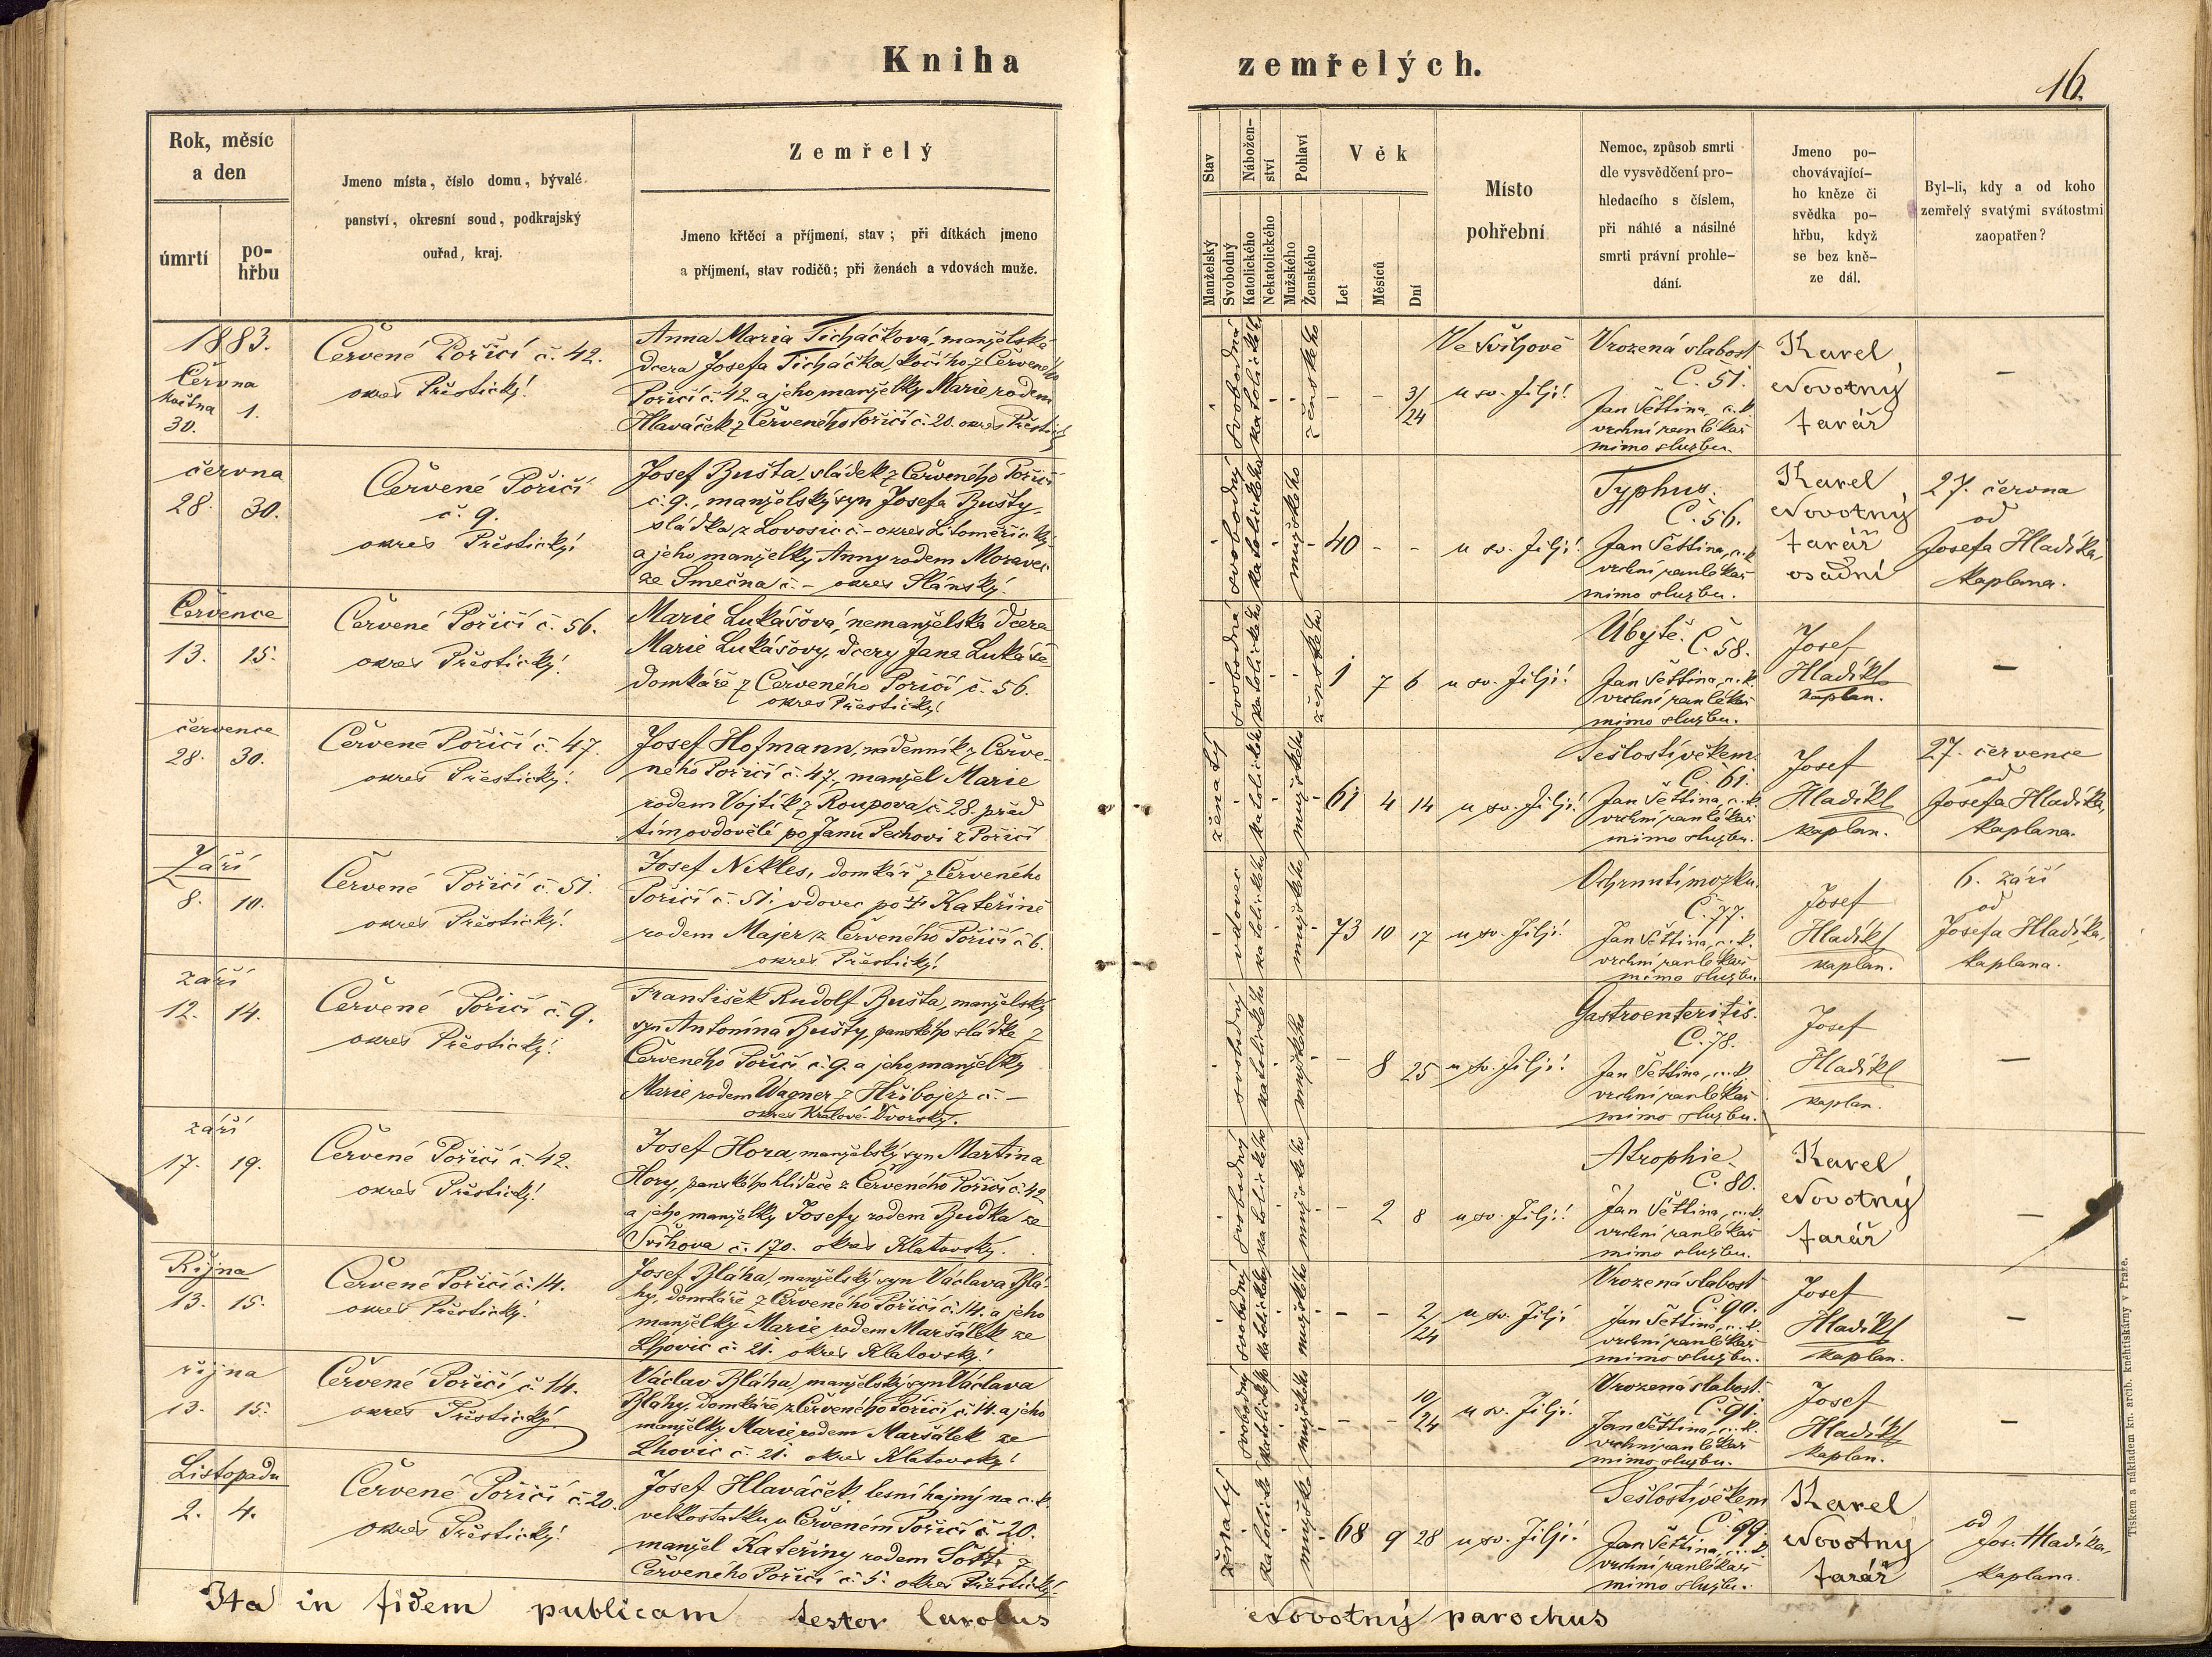 Kniha
zemřelých.
16.
Rok, měsíc
a den
úmrtí
po-
hřbu
Jmeno místa, číslo domu, bývalé
panství, okresní soud, podkrajský
ouřad, kraj.
Zemřelý
Jmeno křtěcí a příjmení, stav; při dítkách jmeno
a příjmení, stav rodičů; při ženách a vdovách muže.
Stav
Manželský
Svobodný
Nábožen-
ství
Katolického
Nekatolického
Pohlaví
Mužského
Ženského
Věk
Let
Měsíců
Dní
Místo
pohřební
Nemoc, způsob smrti
dle vysvědčení pro-
hledacího s číslem,
při náhlé a násilné
smrti právní prohle-
dání.
Jmeno po-
chovávající-
ho kněze či
svědka po-
hřbu, když
se bez kně-
ze dál.
Byl-li, kdy a od koho
zemřelý svatými svátostmi
zaopatřen?
1883.
Června
května
30.
1.
Červené Poříčí č. 42.
okres Přestický
Anna Maria Ticháčková, manželská
dcera Josefa Ticháčka, kočího z Červeného
Poříčí č. 42. a jeho manželky Marie rodem
Hlaváček z Červeného Poříčí č. 20. okres Přestický
svobodná
katolického
ženského
- - 3/24
Ve Švihově
u sv. Jiljí
Vrozená slabost
Č. 51.
Jan Šěttina, c.k.
vrchní ranlékař
mimo službu.
Karel
Novotný
farář
–
června
28. 30.
Červené Poříčí
č. 9.
okres Přestický
Josef Bušta, sládek z Červeného Poříčí
č. 9., manželský syn Josefa Bušty,
sládka z Lovosic č. – okres Litoměřický
a jeho manželky Anny rodem Moravec
ze Smečna č. – okres Slánský.
svobodný
katolického
mužského
40 - -
u sv. Jiljí
Typhus.
Č. 56.
Jan Šěttina, c.k.
vrchní ranlékař
mimo službu.
Karel
Novotný
farář
osadní
27. června
od
Josefa Hladíka,
kaplana.
Července
13. 15.
Červené Poříčí č. 56.
okres Přestický
Marie Lukášová, nemanželská dcera
Marie Lukášovy, dcery Jana Lukáše
domkáře z Červeného Poříčí č. 56.
okres Přestický
svobodná
katolického
ženského
1 7 6
u sv. Jiljí
Úbytě. Č. 58.
Jan Šěttina, c.k.
vrchní ranlékař
mimo službu.
Josef
Hladíkl
kaplan.
–
července
28. 30.
Červené Poříčí č. 47.
okres Přestický
Josef Hofmann, nádenník z Červe-
ného Poříčí č. 47., manžel Marie
rodem Vojtík z Roupova č. 28. před
tím ovdovělé po Janu Pechovi z Poříčí
ženatý
katolického
mužského
61 4 14
u sv. Jiljí
Sešlostí věkem.
Č. 61.
Jan Šěttina, c.k.
vrchní ranlékař
mimo službu.
Josef
Hladíkl
kaplan.
27. července
od
Josefa Hladíka,
kaplana.
Září
8. 10.
Červené Poříčí č. 51.
okres Přestický
Josef Nikles, domkář z Červeného
Poříčí č. 51. vdovec po † Kateřině
rodem Majer z Červeného Poříčí č. 6.
okres Přestický
vdovec
katolického
mužského
73 10 17
u sv. Jiljí
Ochrnutí mozku.
Č. 77.
Jan Šěttina, c.k.
vrchní ranlékař
mimo službu
Josef
Hladíkl
kaplan.
6. září
od
Josefa Hladíka,
kaplana.
září
12. 14.
Červené Poříčí č. 9.
okres Přestický
František Rudolf Bušta, manželský
syn Antonína Bušty, panského sládka z
Červeného Poříčí č. 9. a jeho manželky
Marie rodem Wagner z Hřibojez č. –
okres Králové-Dvorský.
svobodný
katolického
mužského
- 8 25
u sv. Jiljí
Gastroenteritis.
Č. 78.
Jan Šěttina, c.k.
vrchní ranlékař
mimo službu.
Josef
Hladíkl
kaplan.
–
září
17. 19.
Červené Poříčí č. 42.
okres Přestický
Josef Hora, manželský syn Martina
Hory, panského hlídače z Červeného Poříčí č. 42
a jeho manželky Josefy rodem Budka ze
Švihova č. 170. okres Klatovský.
svobodný
katolického
mužského
- 2 8
u sv. Jiljí
Atrophie.
Č. 80.
Jan Šěttina, c.k.
vrchní ranlékař
mimo službu.
Karel
Novotný
farář
–
Října
13. 15.
Červené Poříčí č. 14.
okres Přestický
Josef Bláha, manželský syn Václava Blá-
hy, domkáře z Červeného Poříčí č. 14. a jeho
manželky Marie rodem Maršálek ze
Lhovic č. 21. okres Klatovský
svobodný
katolického
mužského
- - 2/24
u sv. Jiljí
Vrozená slabost
Č. 90.
Jan Šěttina, c.k.
vrchní ranlékař
mimo službu.
Josef
Hladíkl
kaplan.
–
října
13. 15.
Červené Poříčí č. 14.
okres Přestický
Václav Bláha, manželský syn Václava
Bláhy, domkáře z Červeného Poříčí č. 14. a jeho
manželky Marie rodem Maršálek ze
Lhovic č. 21. okres Klatovský
svobodný
katolického
mužského
- - 10/24
u sv. Jiljí
Vrozená slabost.
Č. 91.
Jan Šěttina, c.k.
vrchní ranlékař
mimo službu.
Josef
Hladíkl
kaplan.
–
Listopadu
2. 4.
Červené Poříčí č. 20.
okres Přestický
Josef Hlaváček, lesní hajný na c.k.
velkostatku v Červeném Poříčí č. 20.
manžel Kateřiny rodem z
Červeného Poříčí č. 5. okres Přestický
ženatý
katolické
mužské
68 9 28
u sv. Jiljí
Sešlostí věkem
Č. 99.
Jan Šěttina, c.k.
vrchní ranlékař
mimo službu.
Karel
Novotný
farář
od
Jos. Hladíka,
kaplana.
Ita in fidem publicam testor Carolus
Novotný parochus
Tiskem a nákladem kn. arcib. kněhtiskárny v Praze.